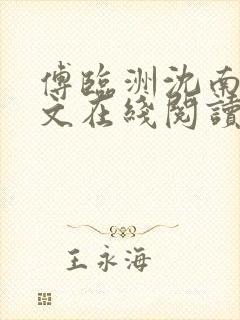 傅臨洲沈南
文在綫閱讀
王永海